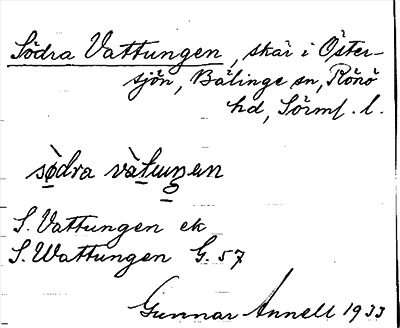 Södra Vattungen, skär i Öster-
sjön, Bälinge sn, Rönö
hd, Sörml. l.
sò̲dra và̲tuŋ̲en
S. Vattungen ek
S. Wattungen G. 57
Gunnar Annell 1933